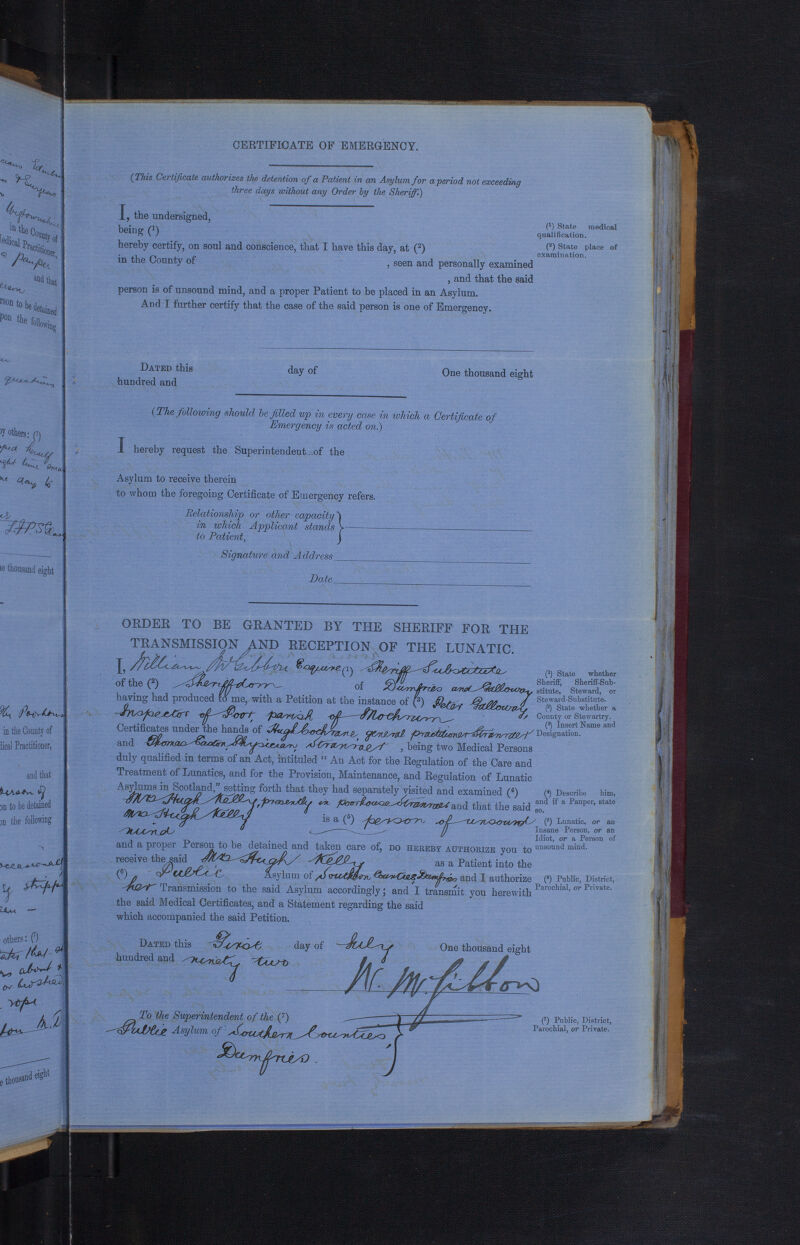 CERTIFICATE OF EMERGENCY.
(This Certificate authorizes the detention of a Patient in an Asylum for a period not exceeding
three days without any Order by the Sheriff.)
I, the undersigned,
being (¹)
(¹) State medical
qualification.
hereby certify, on soul and conscience, that I have this day, at (²)
(²) State place of
examination.
in the County of , seen and personally examined
, and that the said
person is of unsound mind, and a proper Patient to be placed in an Asylum.
And I further certify that the case of the said person is one of Emergency.
DATED this day of One thousand eight
hundred and
(The following should be filled up in every case in which a Certificate of
Emergency is acted on.)
I hereby request the Superintendent of the
Asylum to receive therein
to whom the foregoing Certificate of Emergency refers.
Relationship or other capacity
in which Applicant stands
to Patient,
Signature and Address
Date
ORDER TO BE GRANTED BY THE SHERIFF FOR THE
TRANSMISSION AND RECEPTION OF THE LUNATIC.
I, William McGibbon Esquire (¹) Sheriff Substitute
of the (²) Sheriffdom of Dumfries and Galloway
having had produced to me, with a Petition at the instance of (³) Peter Galloway,
Inspector of Poor parish of Mochrum
Certificates under the hands of Hugh Cochrane, general practitioner Stranraer
and Thomas Easton, Physician, Stranraer , being two Medical Persons
duly qualified in terms of an Act, intituled "An Act for the Regulation of the Care and
Treatment of Lunatics, and for the Provision, Maintenance, and Regulation of Lunatic
Asylums in Scotland," setting forth that they had separately visited and examined (⁴)
Mrs Hugh Kelly, presently in poorhouse Stranraer and that the said
Mrs Hugh Kelly is a (⁵) person of unsound
mind
and a proper Person to be detained and taken care of, DO HEREBY AUTHORIZE you to
receive the said Mrs Hugh Kelly as a Patient into the
(⁶) Public Asylum of Southern Counties Dumfries and I authorize
her Transmission to the said Asylum accordingly; and I transmit you herewith
the said Medical Certificates, and a Statement regarding the said
which accompanied the said Petition.
(¹) State whether
Sheriff, Sheriff-Sub-
stitute, Steward, or
Steward-Substitute.
(²) State whether a
County or Stewartry.
(³) Insert Name and
Designation.
(⁴) Describe him,
and if a Pauper, state
so.
(⁵) Lunatic, or an
Insane Person, or an
Idiot, or a Person of
unsound mind.
(⁶) Public, District,
Parochial, or Private.
DATED this First day of July One thousand eight
hundred and ninety two
W. McGibbon
To the Superintendent of the (⁷)
Public Asylum of Southern Counties,
Dumfries.
(⁷) Public, District,
Parochial, or Private.
in the County of
and that
to be detained
the following
others: (¹)
thousand eight
in the County of
and that
to be detained
the following
others: (¹)
rope
thousand eight